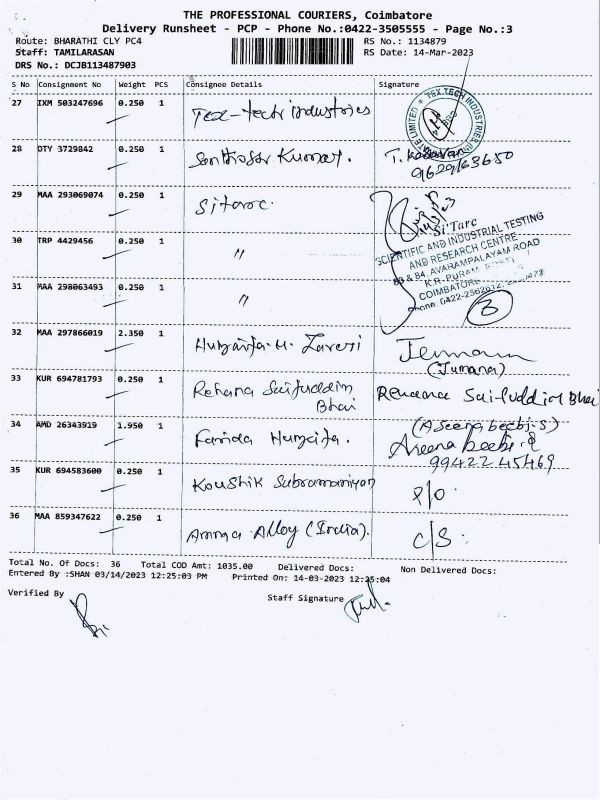 THE PROFESSIONAL COURIERS, Coimbatore
Delivery Runsheet - PCP - Phone No.:0422-3505555 - Page No.:3
Route: BHARATHI CLY PC4
RS No.: 1134879
Staff: TAMILARASAN
RS Date: 14-Mar-2023
DRS No.: DCJB113487903
S No Consignment No Weight PCS Consignee Details Signature
27 IXM 503247696 0.250 1 Tex-tech industries
TEX.TECH INDUSTRIES
28 DTY 3729842 0.250 1 Senthosar Kumar.
9629163650
29 MAA 293069074 0.250 1 Sitarc.
Si'Tarc
SCIENTIFIC AND INDUSTRIAL TESTING
AND RESEARCH CENTRE
83 & 84, AVARAMPALAYAM ROAD
COIMBATORE
30 TRP 4429456 0.250 1 "
31 MAA 298063493 0.250 1 "
3
32 MAA 297866019 2.350 1
(Jumana)
33 KUR 694781793 0.250 1 Rehana Saifuddin
Bhai
Rehana Saifuddin Bhai
34 AMD 26343919 1.950 1 Farida Huzaifa.
(Aseena beebi-S)
Aseena beebi-S
9942245469
35 KUR 694583600 0.250 1 Koushik Subramaniyan P/O.
36 MAA 859347622 0.250 1 Amma Alloy (India). C/S.
Total No. Of Docs: 36 Total COD Amt: 1035.00 Delivered Docs: Non Delivered Docs:
Entered By :SHAN 03/14/2023 12:25:03 PM Printed On: 14-03-2023 12:25:04
Verified By
Staff Signature